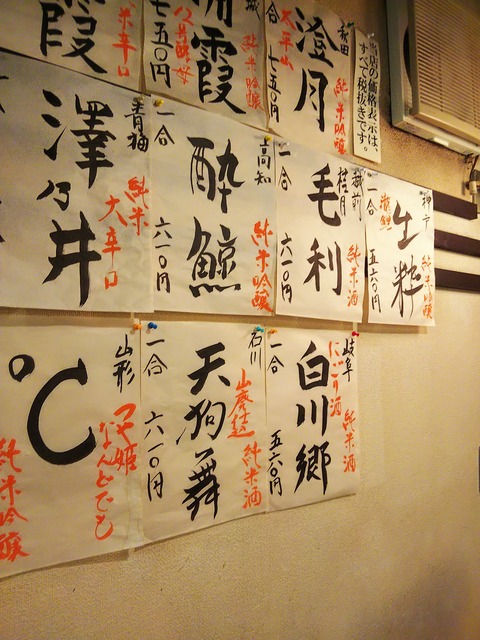 当店の価格表示は、
すべて税抜きです。
秋田
純米吟醸
太平山
澄月
一合
七五〇円
城
純米吟醸
霞
号酵母
七五〇円
辛口
霞
神戸
純米吟醸
生粋
一合
五六〇円
桂月
純米酒
毛利
一合
六一〇円
高知
純米吟醸
酔鯨
一合
六一〇円
青梅
純米
大辛口
澤乃井
岐阜
純米酒
にごり酒
白川郷
一合
五六〇円
石川
山廃仕込 純米酒
天狗舞
一合
六一〇円
山形
つや姫
なんどでも
℃
純米吟醸